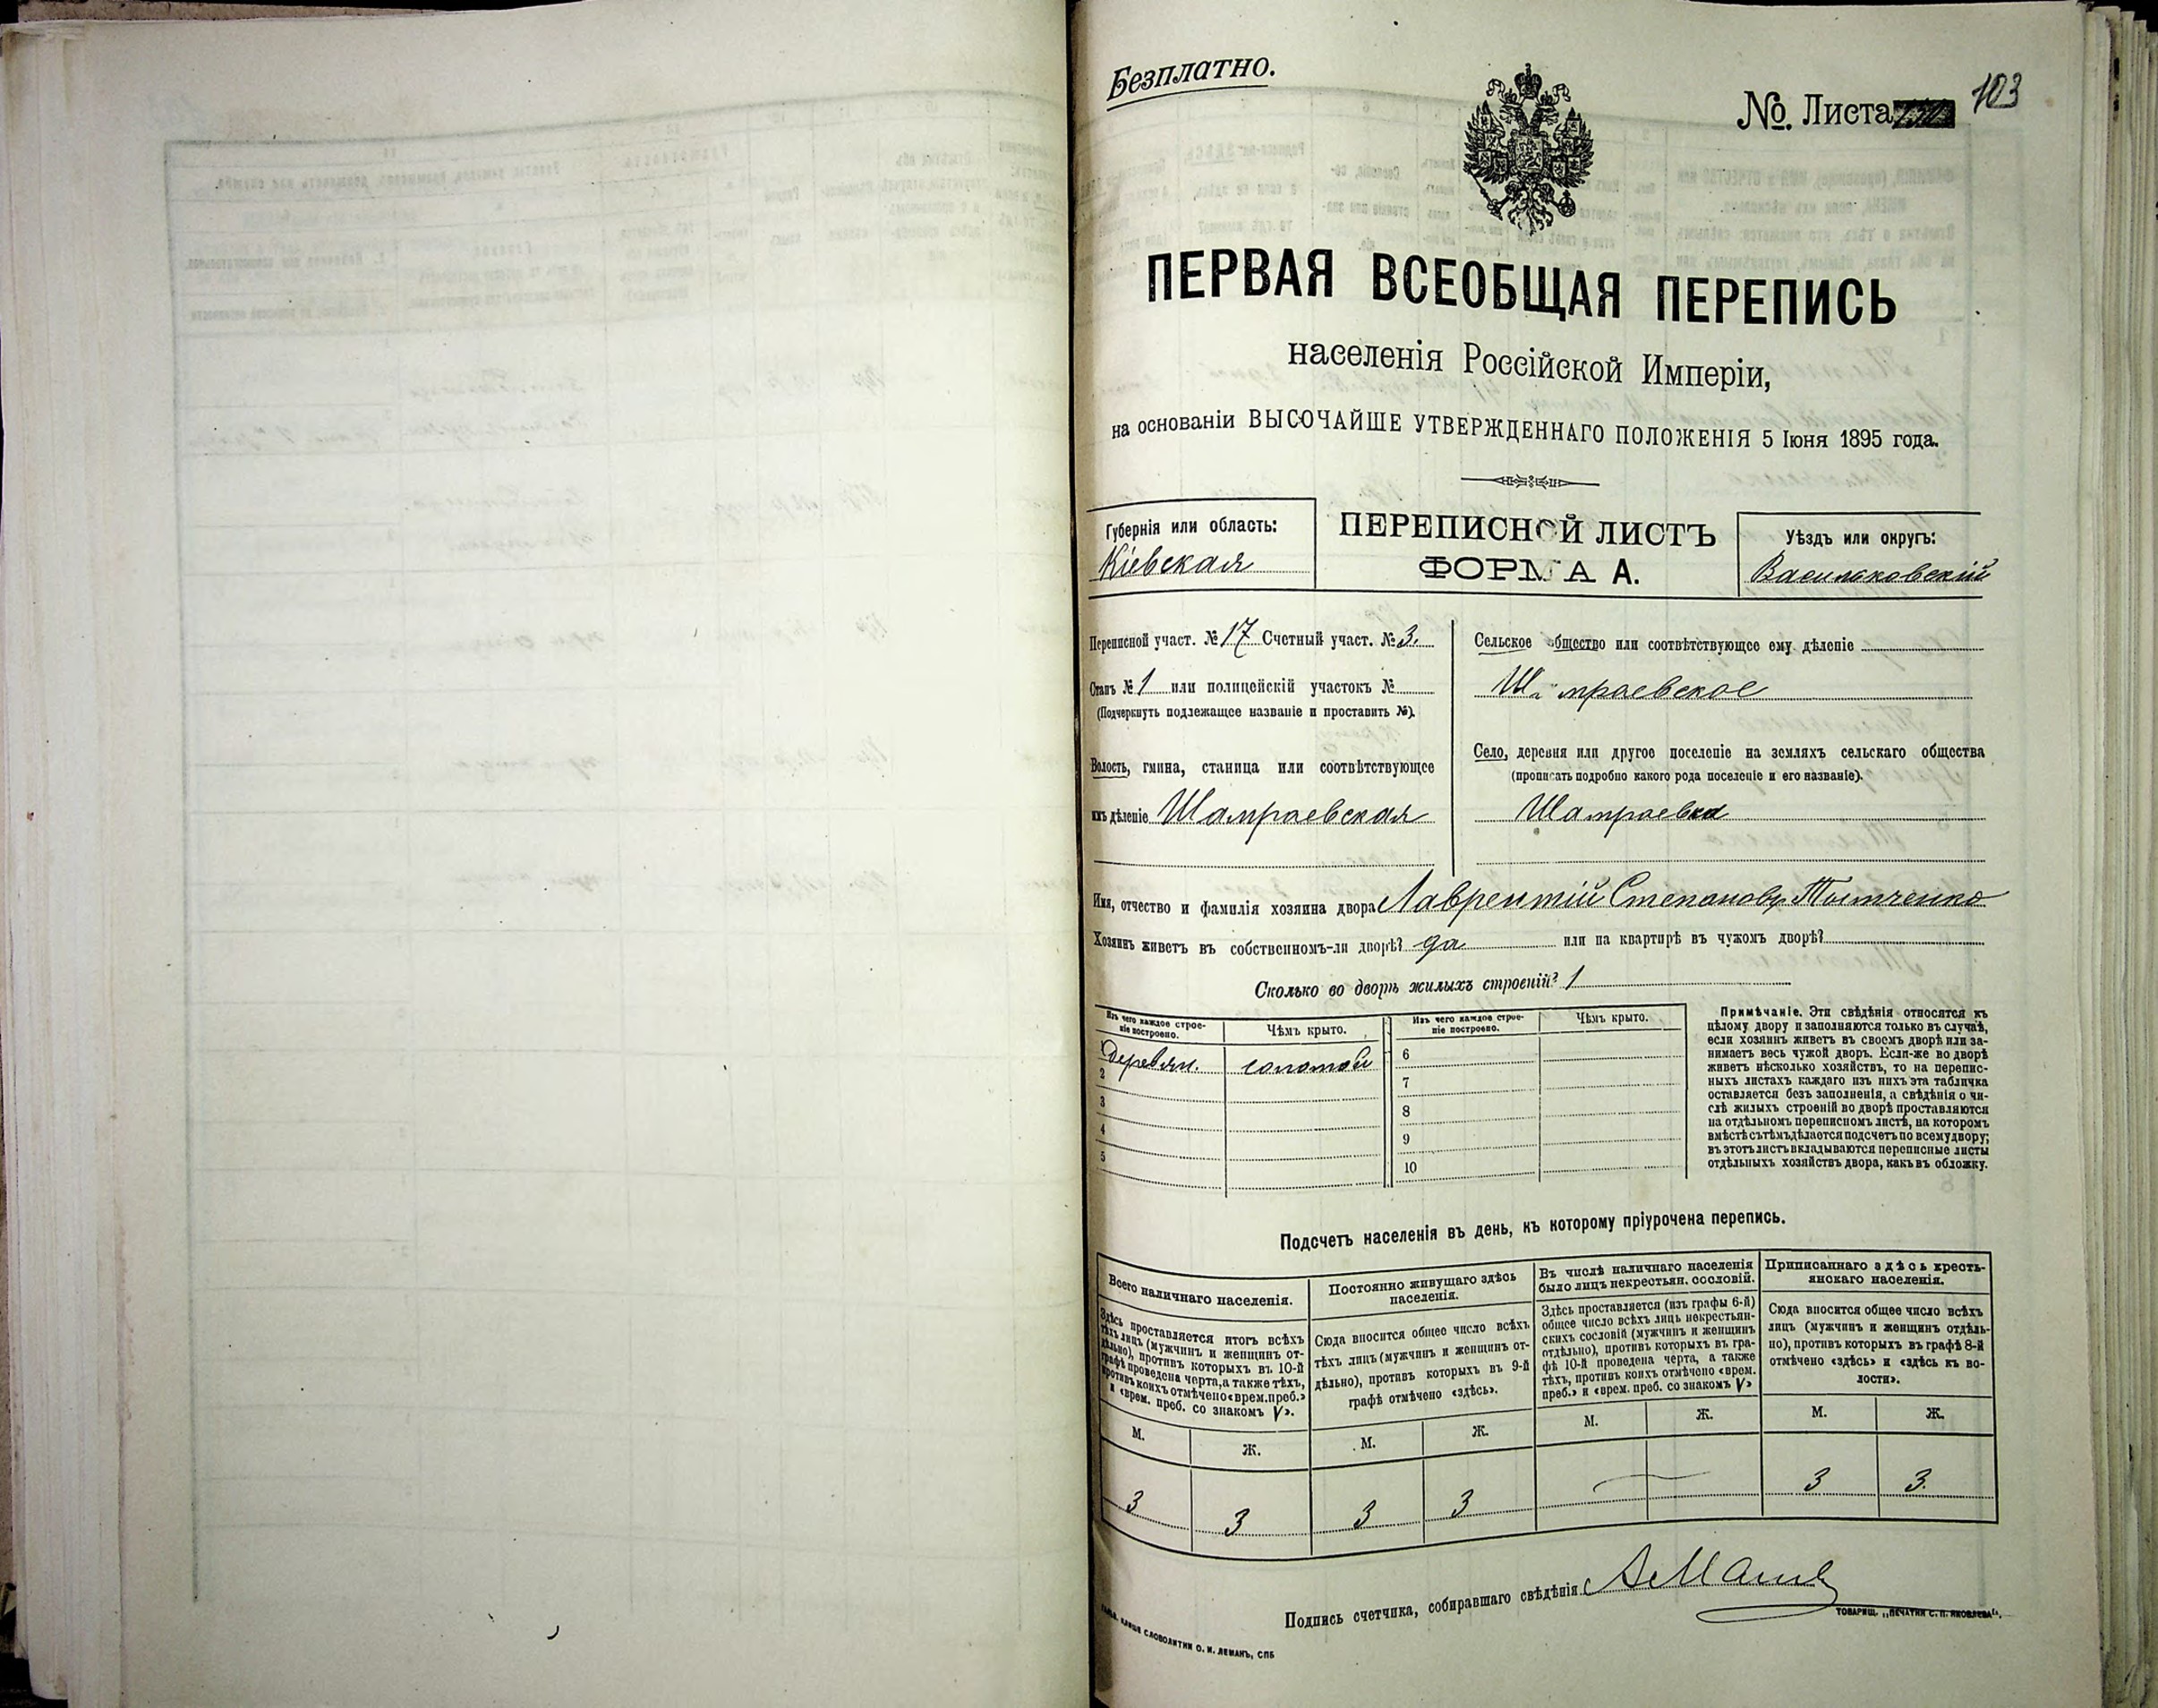 Безплатно.
№ Листа 103
ПЕРВАЯ ВСЕОБЩАЯ ПЕРЕПИСЬ
населенія Россійской Имперіи,
на основаніи ВЫСОЧАЙШЕ УТВЕРЖДЕННАГО ПОЛОЖЕНІЯ 5 Іюня 1895 года.
Губернія или область:
Кіевская
ПЕРЕПИСНОЙ ЛИСТЪ
ФОРМА А.
Уѣздъ или округъ:
Васильковскій
Переписной участ. № 17 Счетный участ. № 3.
Станъ № 1 или полицейскій участокъ №
(Подчеркнуть подлежащее названіе и проставить №).
Волость, гмина, станица или соотвѣтствующее
имъ дѣленіе Шамраевская
Сельское общество или соотвѣтствующее ему дѣленіе
Шамраевское
Село, деревня или другое поселеніе на земляхъ сельскаго общества
(прописать подробно какого рода поселеніе и его названіе).
Шамраевка
Имя, отчество и фамилія хозяина двора Лаврентій Степановъ Тытченко
Хозяинъ живетъ въ собственномъ-ли дворѣ? да или на квартирѣ въ чужомъ дворѣ?
Сколько во дворѣ жилыхъ строеній? 1
Изъ чего каждое строе-
ніе построено.
Чѣмъ крыто.
Изъ чего каждое строе-
ніе построено.
Чѣмъ крыто.
1 деревян. соломой
2
3
4
5
6
7
8
9
10
Примѣчаніе. Эти свѣдѣнія относятся къ
цѣлому двору и заполняются только въ случаѣ,
если хозяинъ живетъ въ своемъ дворѣ или за-
нимаетъ весь чужой дворъ. Если-же во дворѣ
живетъ нѣсколько хозяйствъ, то на перепис-
ныхъ листахъ каждаго изъ нихъ эта табличка
оставляется безъ заполненія, а свѣдѣнія о чи-
слѣ жилыхъ строеній во дворѣ проставляются
на отдѣльномъ переписномъ листѣ, на которомъ
вмѣстѣ съ тѣмъ дѣлается подсчетъ по всему двору;
въ этотъ листъ вкладываются переписные листы
отдѣльныхъ хозяйствъ двора, какъ въ обложку.
Подсчетъ населенія въ день, къ которому пріурочена перепись.
Всего наличнаго населенія.
Здѣсь проставляется итогъ всѣхъ
тѣхъ лицъ (мужчинъ и женщинъ от-
дѣльно), противъ которыхъ въ 10-й
графѣ проведена черта, а также тѣхъ,
противъ коихъ отмѣчено «врем. преб.»
и «врем. преб. со знакомъ V».
Постоянно живущаго здѣсь
населенія.
Сюда вносится общее число всѣхъ
тѣхъ лицъ (мужчинъ и женщинъ от-
дѣльно), противъ которыхъ въ 9-й
графѣ отмѣчено «здѣсь».
Въ числѣ наличнаго населенія
было лицъ некрестьян. сословій.
Здѣсь проставляется (изъ графы 6-й)
общее число всѣхъ лицъ некрестьян-
скихъ сословій (мужчинъ и женщинъ
отдѣльно), противъ которыхъ въ гра-
фѣ 10-й проведена черта, а также
тѣхъ, противъ коихъ отмѣчено «врем.
преб.» и «врем. преб. со знакомъ V»
Приписаннаго здѣсь кресть-
янскаго населенія.
Сюда вносится общее число всѣхъ
лицъ (мужчинъ и женщинъ отдѣль-
но), противъ которыхъ въ графѣ 8-й
отмѣчено «здѣсь» и «здѣсь къ во-
лости».
М. Ж. М. Ж. М. Ж. М. Ж.
3 3 3 3 — 3 3.
Подпись счетчика, собиравшаго свѣдѣнія
СЛОВОЛИТНИ О. И. ЛЕМАНЪ, СПБ
ТОВАРИЩ. „ПЕЧАТНИ С. П. ЯКОВЛЕВА".